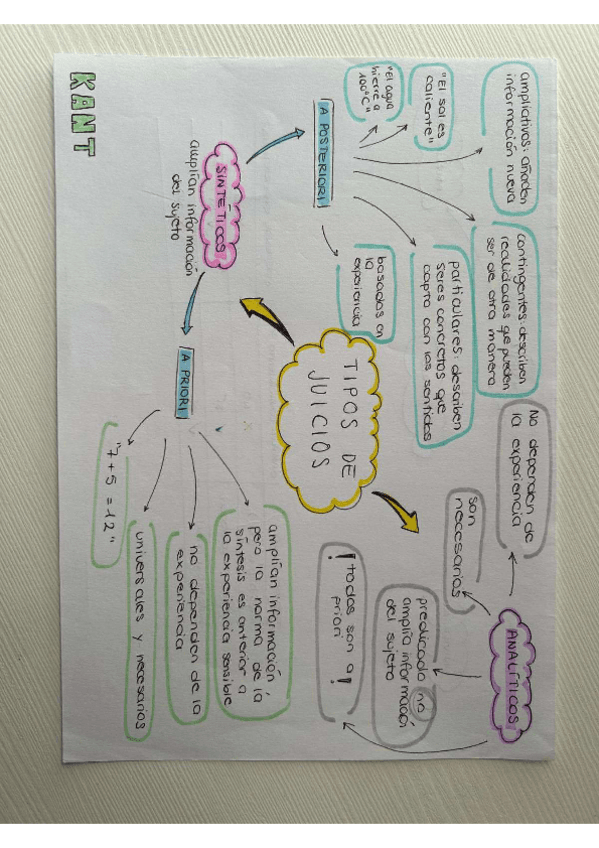 KANT
TIPOS DE
JUICIOS
SINTÉTICOS
amplían información
del sujeto
A POSTERIORI
"El agua
hierre a
100°C"
"El sol es
caliente"
ampliativos: añaden
información nueva
contingentes: describen
realidades que pueden
ser de otra manera
particulares: describen
seres concretos que
capta con los sentidos
basados en
la
experiencia
A PRIORI
"7+5=12"
universales y necesarios
no dependen de la
experiencia
amplían información
pero la norma de la
síntesis es anterior a
la experiencia sensible
ANALÍTICOS
No dependen de
la experiencia
son
necesarios
predicado no
amplía información
del sujeto
¡todos son a!
priori